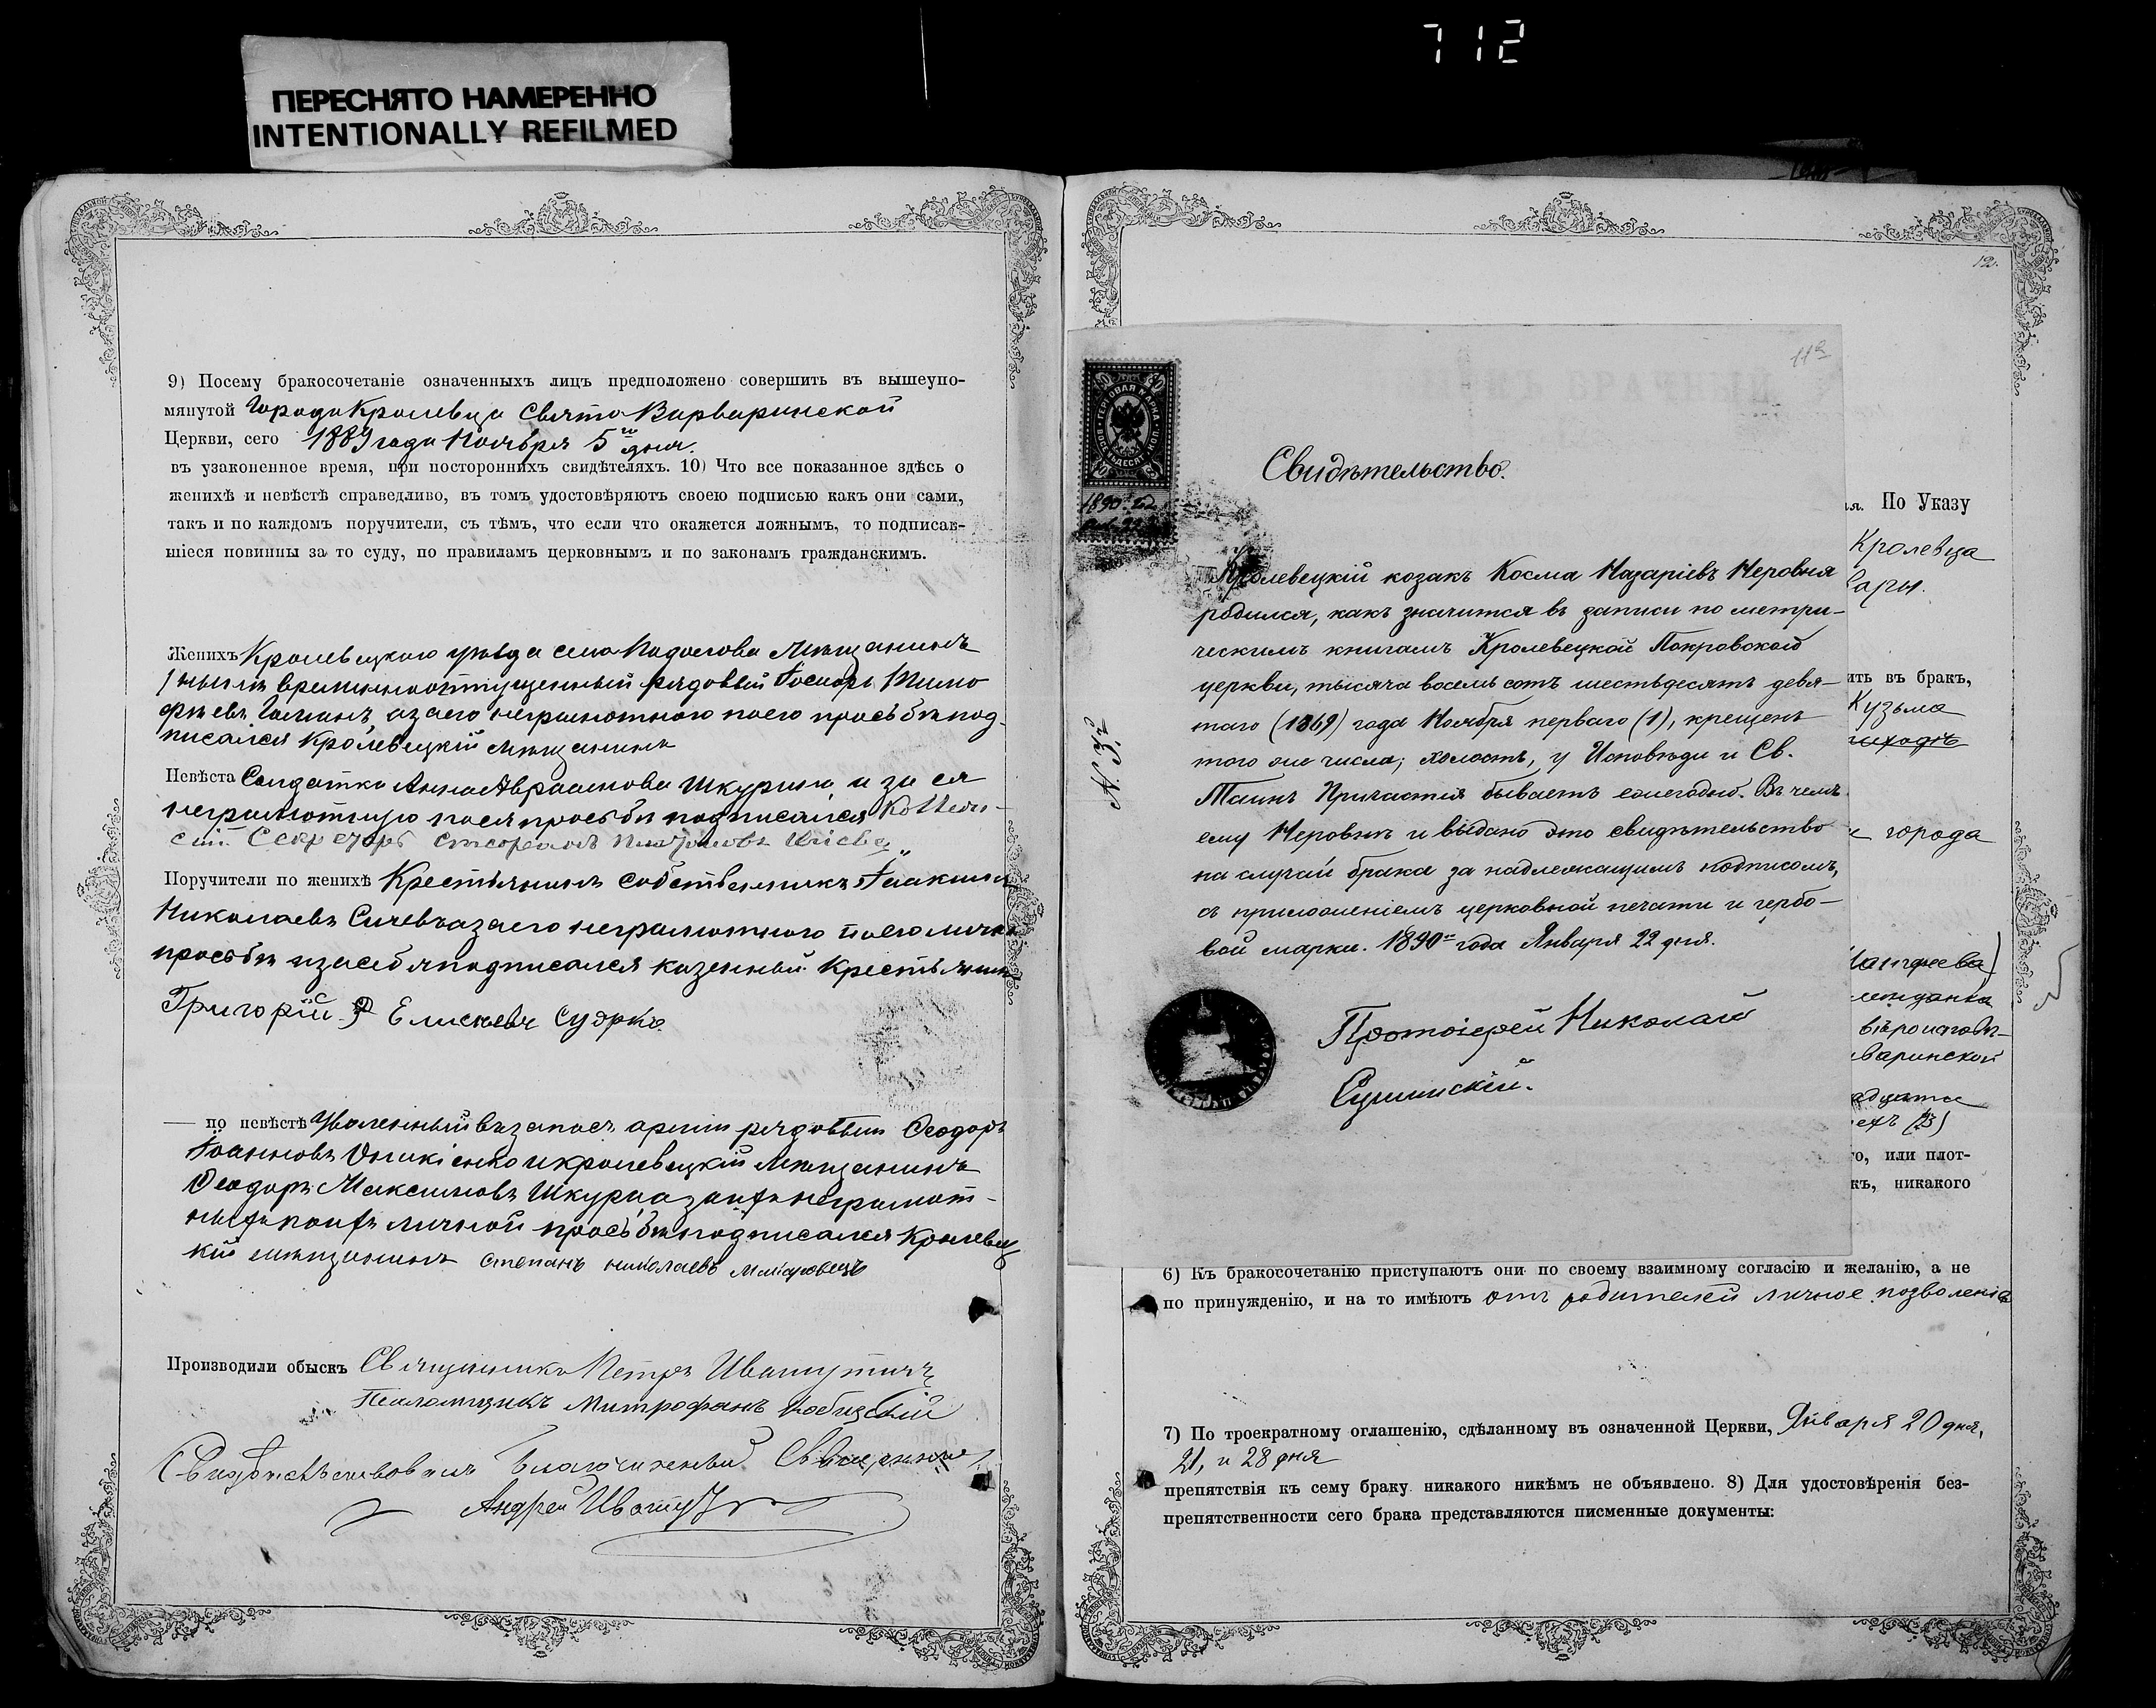 712
ПЕРЕСНЯТО НАМЕРЕННО
INTENTIONALLY REFILMED
9) Посему бракосочетаніе означенныхъ лицъ предположено совершить въ вышеупо-
мянутой Города Кролевца Свято Варваринской
Церкви, сего 1889 года Ноября 5го дня.
въ узаконенное время, при постороннихъ свидѣтеляхъ. 10) Что все показанное здѣсь о
женихѣ и невѣстѣ справедливо, въ томъ удостовѣряютъ своею подписью какъ они сами,
такъ и по каждомъ поручители, съ тѣмъ, что если что окажется ложнымъ, то подписав-
шіеся повинны за то суду, по правиламъ церковнымъ и по законамъ гражданскимъ.
Женихъ Кролевецкаго уѣзда села Подолова Мѣщанинъ
временноотпущенный рядовый Тимо
фѣевъ, а за его неграмотного по его прозьбѣ под-
писался Кролевецкій мѣщанинъ
Невѣста Солдатка Анна Авраамова Шкурина и за ея
неграмотную по ея прозьбѣ подписался
Поручители по женихѣ Крестьянинъ собственникъ
Николаевъ а за его неграмотного по его личн
прозьбѣ и за себя подписался казенный крестьянин
Григорій Елисѣевъ
— по невѣстѣ Уволенный въ запасъ арміи рядовый Ѳеодоръ
Іоанновъ и кролевецкій мѣщанинъ
Ѳеодоръ Максимовъ Шкура а за ихъ неграмот-
ныхъ по ихъ личной прозьбѣ подписался Кролевец
кій мѣщанинъ Степанъ Николаевъ
Производили обыскъ Священникъ Петръ Ивашутичъ
Псаломщикъ Митрофанъ
Свидѣтельствовалъ Благочинный Священникъ
Андрей
12.
11а
1890 г.
№ 32
Свидѣтельство.
Кролевецкій козакъ Косма Назаріевъ Неровня
родился, какъ значится въ записи по метри-
ческимъ книгамъ Кролевецкой Покровской
церкви, тысяча восемь сотъ шестьдесятъ девя-
таго (1869) года Ноября перваго (1), крещенъ
того же числа; холостъ, у Исповѣди и Св.
Таинъ Причастія бываетъ ежегодно. Въ чемъ
ему Неровнѣ и выдано это свидѣтельство
на случай брака за надлежащимъ подписомъ,
съ приложеніемъ церковной печати и гербо-
вой марки. 1890го года Января 22 дня.
Протоіерей Николай
Сушинскій.
По Указу
Кролевца
вары.
ить въ бракъ,
Кузьма
города
варинской
(23)
го, или плот-
къ, никакого
6) Къ бракосочетанію приступаютъ они по своему взаимному согласію и желанію, а не
по принужденію, и на то имѣютъ отъ родителей личное позволеніе
7) По троекратному оглашенію, сдѣланному въ означенной Церкви, Января 20 дня,
21, и 28 дня
препятствія къ сему браку никакого никѣмъ не объявлено. 8) Для удостовѣренія без-
препятственности сего брака представляются писменные документы: